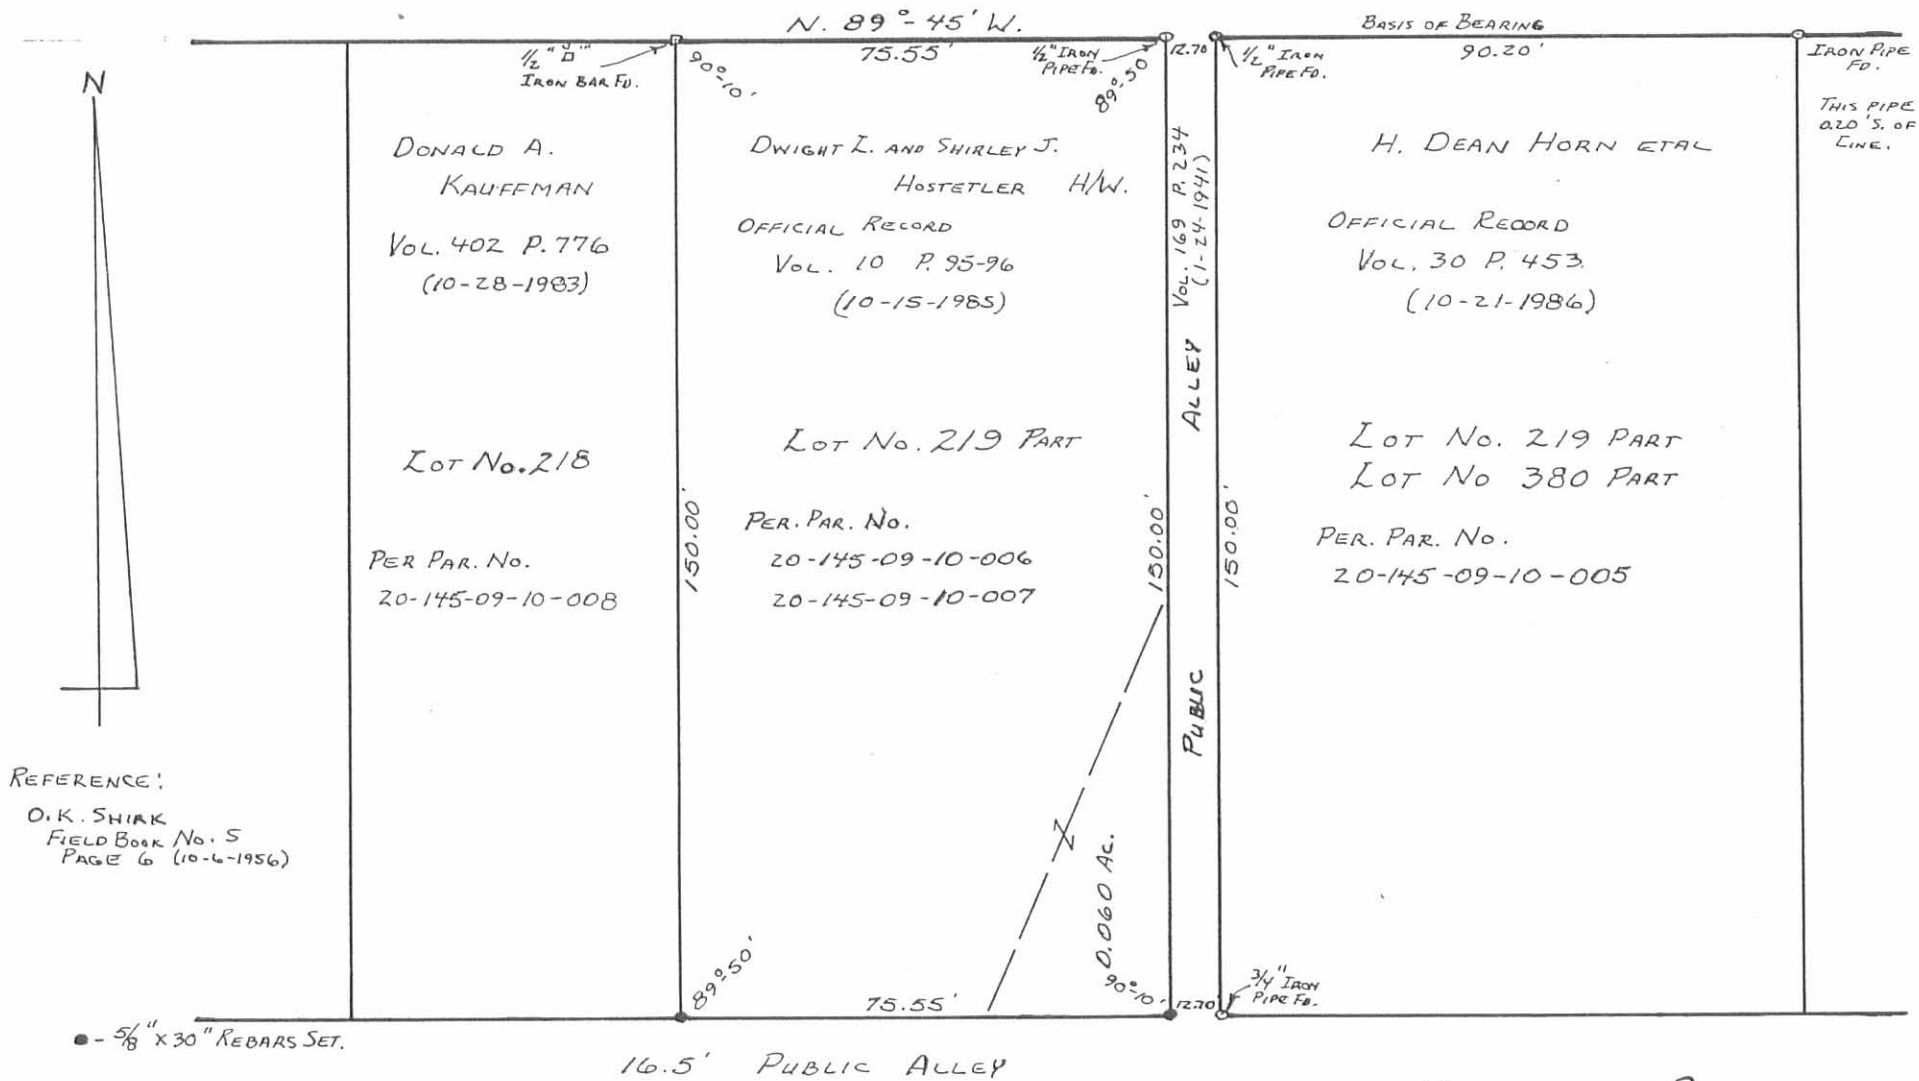 N. 89°-45' W.
BASIS OF BEARING
N
1/2" □"
IRON BAR FD.
90°-10'
75.55'
1/2" IRON
PIPE FD.
89°-50'
12.70
1/2" IRON
PIPE FD.
90.20'
IRON PIPE
FD.
THIS PIPE
0.20'S. OF
LINE.
DONALD A.
KAUFFMAN
VOL. 402 P. 776
(10-28-1983)
LOT No. 218
PER PAR. No.
20-145-09-10-008
DWIGHT L. AND SHIRLEY J.
HOSTETLER H/W.
OFFICIAL RECORD
VOL. 10 P. 95-96
(10-15-1985)
LOT No. 219 PART
PER. PAR. No.
20-145-09-10-006
20-145-09-10-007
150.00'
150.00'
150.00'
VOL. 169 P. 234
(1-24-1941)
PUBLIC ALLEY
H. DEAN HORN ETAL
OFFICIAL RECORD
VOL. 30 P. 453.
(10-21-1986)
LOT No. 219 PART
LOT No 380 PART
PER. PAR. No.
20-145-09-10-005
REFERENCE:
O.K. SHIRK
FIELD BOOK No. 5
PAGE 6 (10-6-1956)
Z
0.060 AC.
89°50'
75.55'
90°-10'
12.70'
3/4" IRON
PIPE FD.
● - 5/8" x 30" REBARS SET.
16.5' PUBLIC ALLEY